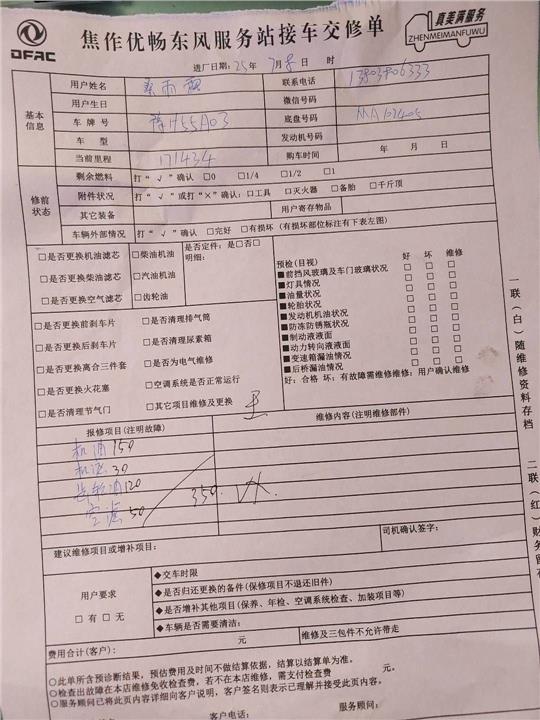 DFAC
焦作优畅东风服务站接车交修单
真美满服务
ZHENMEIMANFUWU
进厂日期：25年 7月8日 时
基本信息
用户姓名
联系电话
用户生日
微信号码
车牌号 豫H55A03
底盘号码 MA107405
车型
发动机号码
当前里程 171434
购车时间 年 月 日
修前状态
剩余燃料 打“√”确认 □0 □1/4 □1/2 □1
附件状况 打“√”或打“×”确认：□工具 □灭火器 □备胎 □千斤顶
其它装备
用户寄存物品
车辆外部情况 打“√”确认 □完好 □有损坏（有损坏部位标注有下表左图）
□是否更换机油滤芯 □柴油机油
□是否更换柴油滤芯 □汽油机油
□是否更换空气滤芯 □齿轮油
是否定件：是□否□
明细：
□是否更换前刹车片 □是否清理排气筒
□是否更换后刹车片 □是否清理尿素箱
□是否更换离合三件套 □是否为电气维修
□是否更换火花塞 □空调系统是否正常运行
□是否清理节气门 □其它项目维修及更换
预检(目视) 好 坏 维修
■前挡风玻璃及车门玻璃状况 □ □ □
■灯具情况 □ □ □
■油量状况 □ □ □
■轮胎状况 □ □ □
■发动机机油状况 □ □ □
■防冻防锈瓶状况 □ □ □
■制动液液面 □ □ □
■动力转向液液面 □ □ □
■变速箱漏油情况 □ □ □
■后桥漏油情况 □ □ □
好：合格 坏：有故障需维修维修：用户确认维修
报修项目(注明故障)
维修内容(注明维修部件)
机油 150
机滤 30
齿轮油 120
空滤 50
350.
司机确认签字：
建议维修项目或增补项目：
用户要求
□有 □无
◆交车时限
◆是否归还更换的备件(保修项目不退还旧件)
◆是否增补其他项目(保养、年检、空调系统检查、加装项目等)
◆车辆是否需要清洁：
费用合计(客户)： 元
维修及三包件不允许带走
○此单所含预诊断结果，预估费用及时间不做结算依据，结算以结算单为准。
○检查出故障在本店维修免收检查费，若不在本店维修，需支付检查费 元。
○服务顾问已将此页内容详细向客户说明，客户签名则表示已理解并接受此页内容。
客户电话：
服务顾问：
一联(白)随维修资料存档
二联(红)财务留存